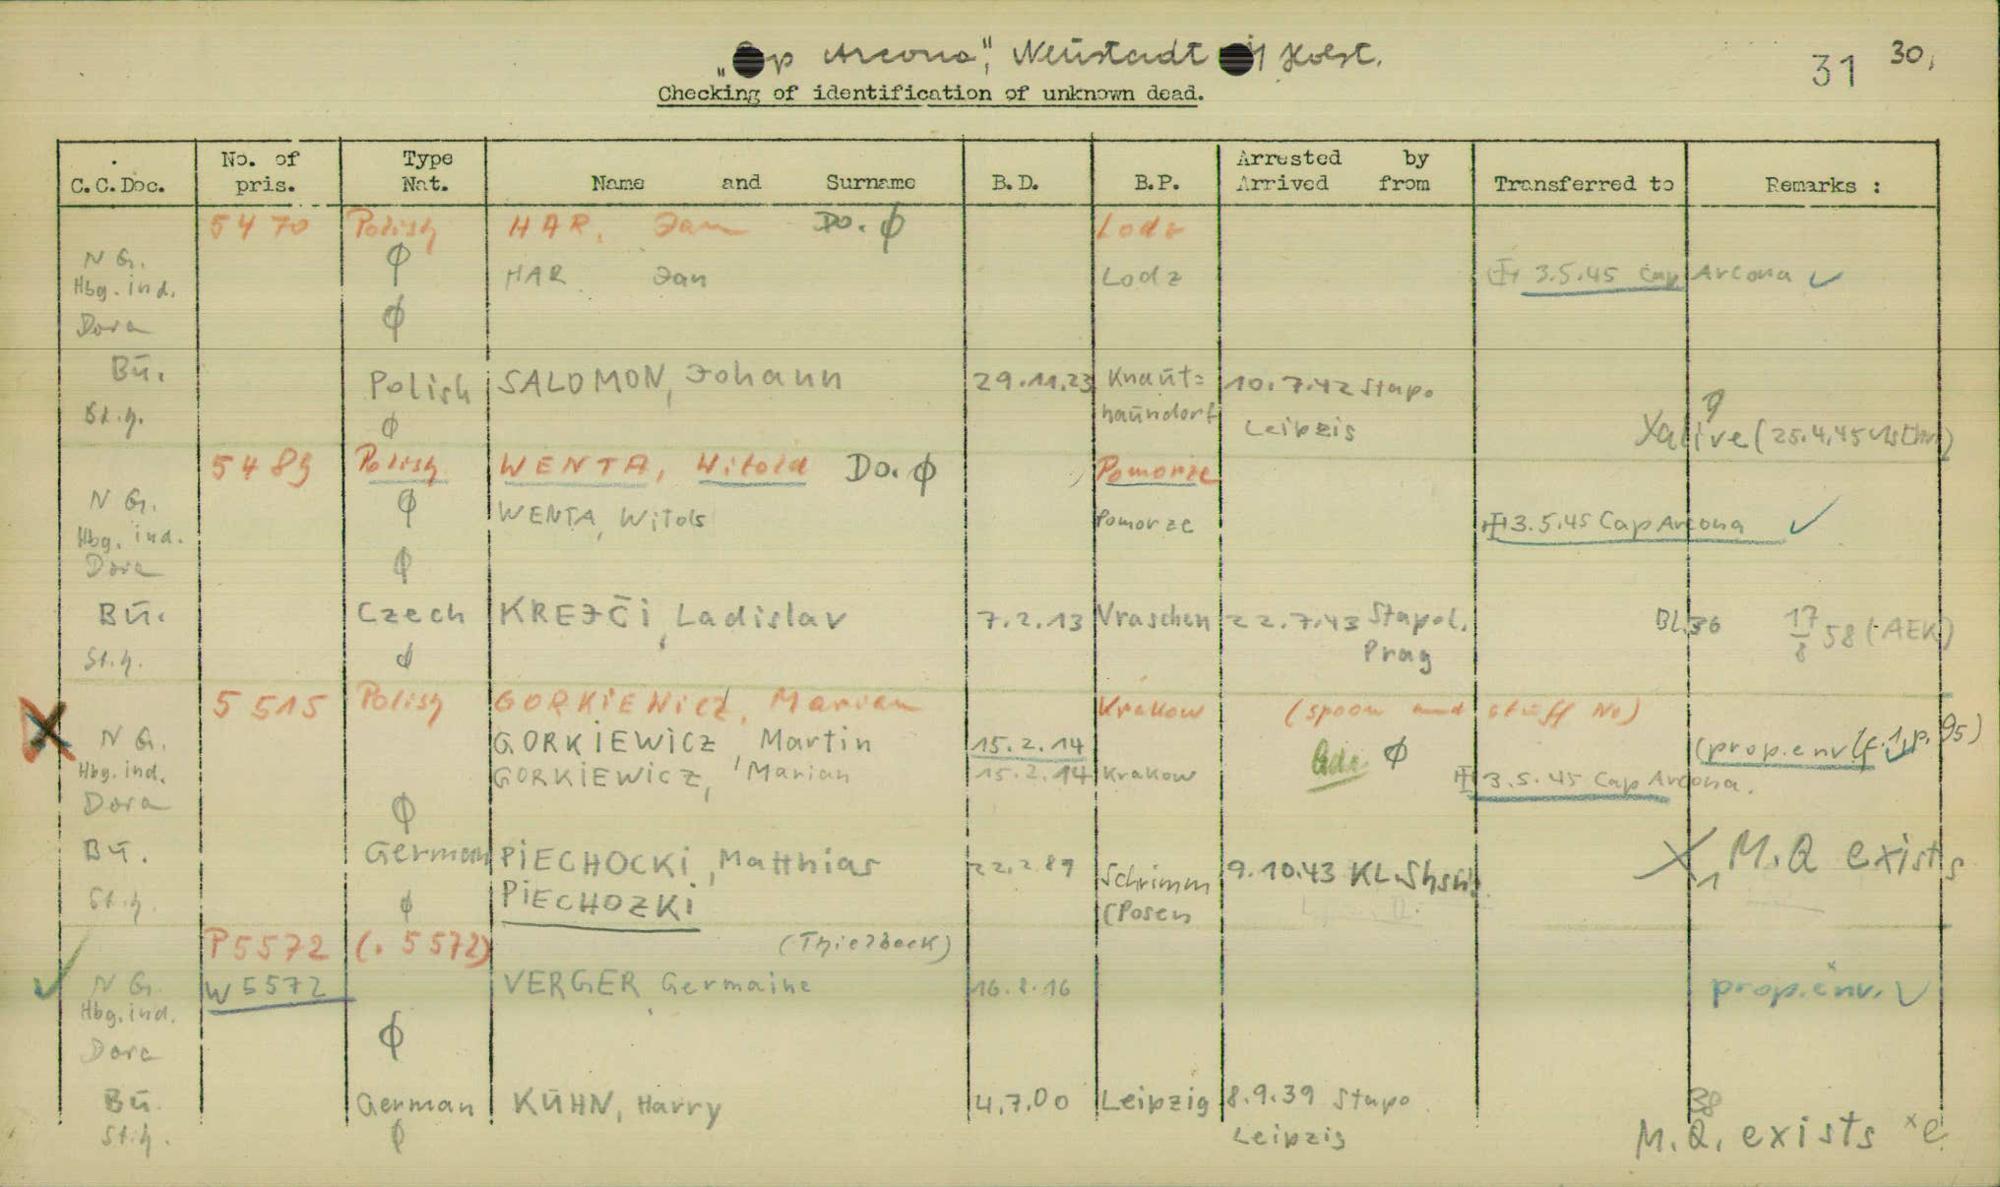 "Cap Arcona", Neustadt i/ Holst.
31 30,
Checking of identification of unknown dead.
C.C.Doc. No. of pris. Type Nat. Name and Surname B.D. B.P. Arrested by Arrived from Transferred to Remarks :
5470 Polish HAR, Jan Do. ϕ Lodz
N G. ϕ
Hbg. ind. HAR Jan Lodz 3.5.45 Cap Arcona ✓
Dora ϕ
Bū. Polish SALOMON, Johann 29.11.23 Knaūt= 10.7.42 Stapo
haūndorf Leipzig
St.h. ϕ Xalive (25.4.45
5489 Polish WENTA, Witold Do. ϕ Pomorze
N G. ϕ WENTA, Witols Pomorze 3.5.45 Cap Arcona ✓
Hbg. ind.
Dora ϕ
Bū. Czech KREJČI, Ladislav 7.2.13 Vraschen 22.7.43 Stapol. Bl.36 17/8 58 (AEK)
St.h. ϕ Prag
5515 Polish GORKIEWicz, Marian Krakow (spoon and stuff No)
X N G. GORKIEWicz, Martin 15.2.14 ϕ (prop.env (f.1, p.95)
Hbg. ind. GORKIEWicz, Marian 15.2.14 Krakow 3.5.45 Cap Arcona.
Dora ϕ
Bū. German PiECHOCKi, Matthias 22.2.89 Schrimm 9.10.43 KL. X M.Q exists
St.h. ϕ PiECHOZKi (Posen
P5572 (. 5572) (Thielbeck)
✓ N G. W 5572 VERGER, Germaine 16.8.16 prop.env. ✓
Hbg. ind.
Dora ϕ
Bū. German KŪHN, Harry 4.7.00 Leipzig 8.9.39 Stapo 38
St.h. ϕ Leipzig M.Q. exists